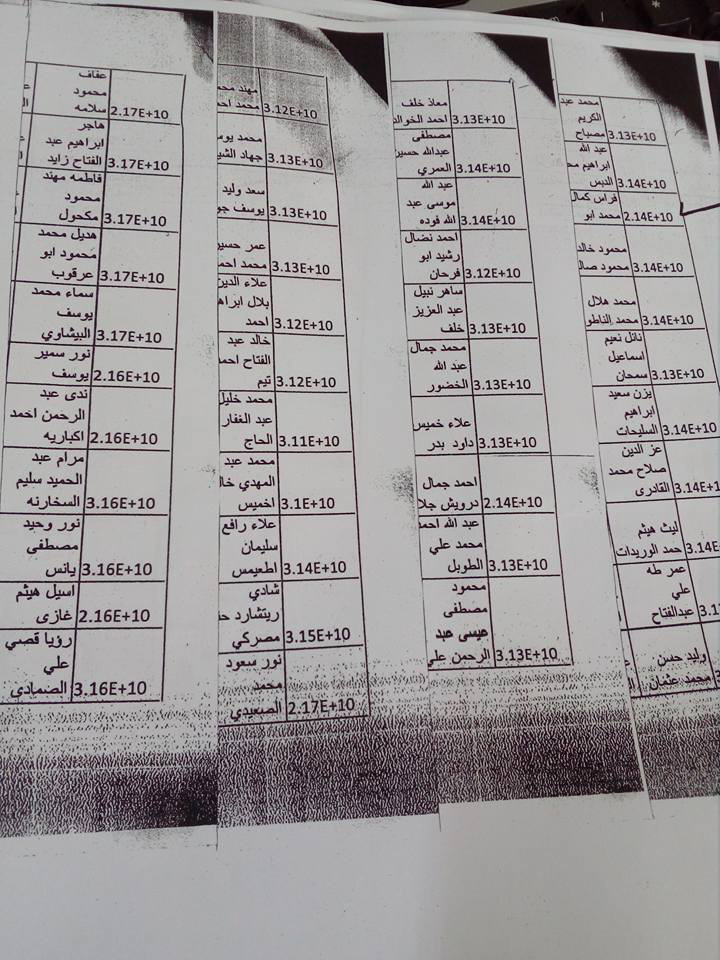 عفاف
محمود
سلامه 2.17E+10
هاجر
ابراهيم عبد
الفتاح زايد 3.17E+10
فاطمه مهند
محمود
مكحول 3.17E+10
هديل محمد
محمود ابو
عرقوب 3.17E+10
سماء محمد
يوسف
البيشاوي 3.17E+10
نور سمير
يوسف 2.16E+10
ندى عبد
الرحمن احمد
اكباريه 2.16E+10
مرام عبد
الحميد سليم
السخارنه 3.16E+10
نور وحيد
مصطفى
يانس 3.16E+10
اسيل هيثم
غازى 2.16E+10
رؤيا قصي
علي
الصمادى 3.16E+10
مهند
محمد 3.12E+10
محمد
جهاد 3.13E+10
سعد وليد
يوسف 3.13E+10
عمر حسين
محمد 3.13E+10
علاء الدين
بلال
احمد 3.12E+10
خالد عبد
الفتاح احمد
تيم 3.12E+10
محمد خليل
عبد الغفار
الحاج 3.11E+10
محمد عبد
المهدي
اخميس 3.1E+10
علاء رافع
سليمان
اطعيمس 3.14E+10
شادي
ريتشارد
مصركي 3.15E+10
نور سعود
محمد
الصعيدي 2.17E+10
معاذ خلف
احمد 3.13E+10
مصطفى
عبدالله حسين
العمري 3.14E+10
عبد الله
موسى عبد
الله فوده 3.14E+10
احمد نضال
رشيد ابو
فرحان 3.12E+10
ساهر نبيل
عبد العزيز
خلف 3.13E+10
محمد جمال
عبد الله
الخضور 3.13E+10
علاء خميس
داود بدر 3.13E+10
احمد جمال
درويش 2.14E+10
عبد الله احمد
محمد علي
الطويل 3.13E+10
محمود
مصطفى
عيسى عبد
الرحمن علي 3.13E+10
محمد عبد
الكريم
مصباح 3.13E+10
عبد الله
ابراهيم
الدبس 3.14E+10
فراس كمال
محمد ابو 2.14E+10
محمود خالد
محمود 3.14E+10
محمد هلال
محمد 3.14E+10
نائل نعيم
اسماعيل
سمحان 3.13E+10
يزن سعيد
ابراهيم
السليحات 3.14E+10
عز الدين
صلاح محمد
القادرى 3.14E+1
ليث هيثم
حمد الوريدات 3.14E
عمر طه
علي
عبدالفتاح 3.1
وليد حسن
محمد عثمان